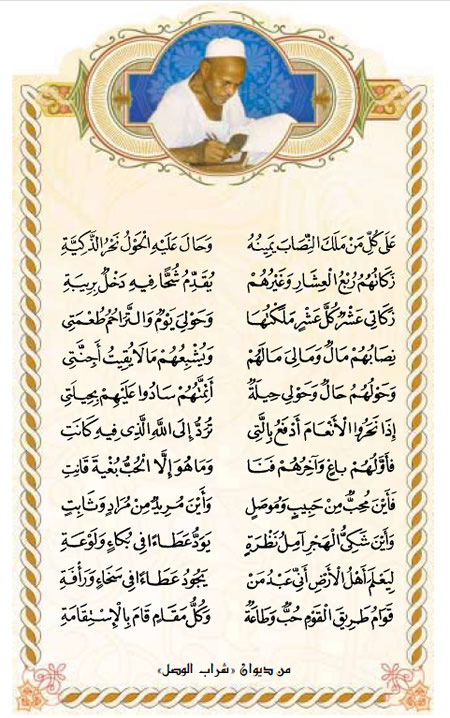 عَلَى كُلِّ مَنْ مَلَكَ النِّصَابَ يَمِينُهُ وَحَالَ عَلَيْهِ الْحَوْلُ نَحْرُ الذَّكِيَّةِ
زَكَاتُهُمُ رُبْعُ الْعِشَارِ وَغَيْرُهُمْ يُقَدِّمُ شُحًّا فِيهِ دَخْلٌ بِرِيبَةِ
زَكَاتِي عَشْرٌ كُلَّ عَشْرٍ مَلَكْتُهَا وَحَوْلِيَ يَوْمٌ وَالتَّرَاحُمُ طُعْمَتِي
نِصَابُهُمُ مَالٌ وَمَالِيَ مَالَهُمْ وَيُشْبِعُهُمْ مَا لَا يُقِيتُ أَجِنَّتِي
وَحَوْلُهُمُ حَالٌ وَحَوْلِيَ حِيلَةٌ أَئِمَّتُهُمْ سَادُوا عَلَيْهِمْ بِحِيلَتِي
إِذَا نَحَرُوا الْأَنْعَامَ أَدْفَعُ بِالَّتِي تُرَدُّ إِلَى اللهِ الَّذِي فِيهِ كَانَتِ
فَأَوَّلُهُمْ بَاغٍ وَآخِرُهُمْ فَنَا وَمَا هُوَ إِلَّا الْحُبُّ بُغْيَةَ قَانِتِ
فَأَيْنَ مُحِبٌّ مِنْ حَبِيبٍ وَمُوصَلٍ وَأَيْنَ مُرِيدٌ مِنْ مُرَادٍ وَثَابِتِ
وَأَيْنَ شَكِيُّ الْهَجْرِ آمِلُ نَظْرَةٍ يَوَدُّ عَطَاءً فِي بُكَاءٍ وَلَوْعَةِ
لِيَعْلَمَ أَهْلُ الْأَرْضِ أَنِّيَ عَبْدُ مَنْ يَجُودُ عَطَاءً فِي سَخَاءٍ وَرَأْفَةِ
قَوَامُ طَرِيقِ الْقَوْمِ حُبٌّ وَطَاعَةٌ وَكُلُّ مَقَامٍ قَامَ بِالْإِسْتِقَامَةِ
من ديوان «شراب الوصل»